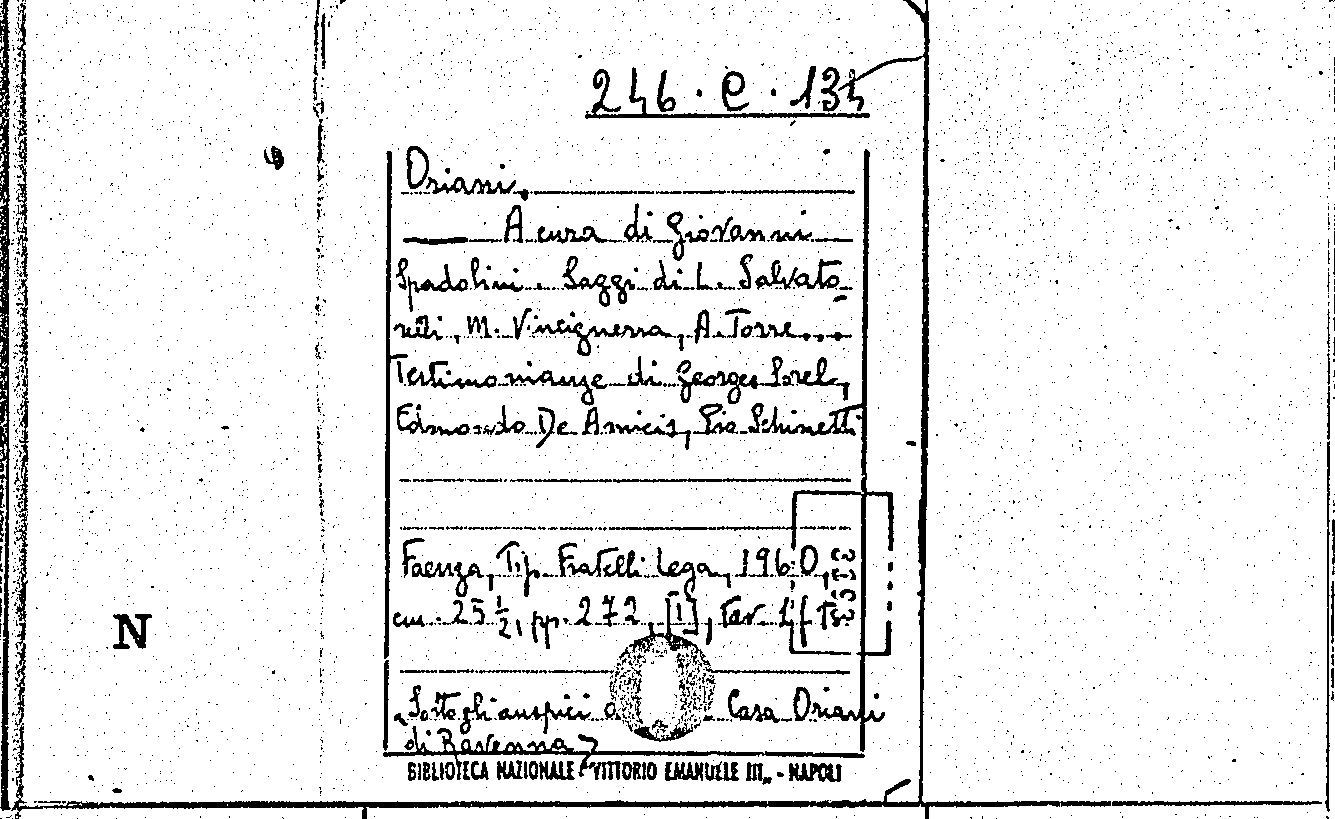 246.C.134
Oriani.
— A cura di Giovanni
Spadolini. Saggi di L. Salvato-
relli, M. Vinciguerra, A. Torre...
Testimonianze di Georges Sorel,
Edmondo De Amicis, Pio Schinetti
Faenza, Tip. Fratelli Lega, 1960,
cm. 25 ½, pp. 272, [1], tav. 1
Sotto gli auspici Casa Oriani
di Ravenna
N
BIBLIOTECA NAZIONALE "VITTORIO EMANUELE III„ - NAPOLI